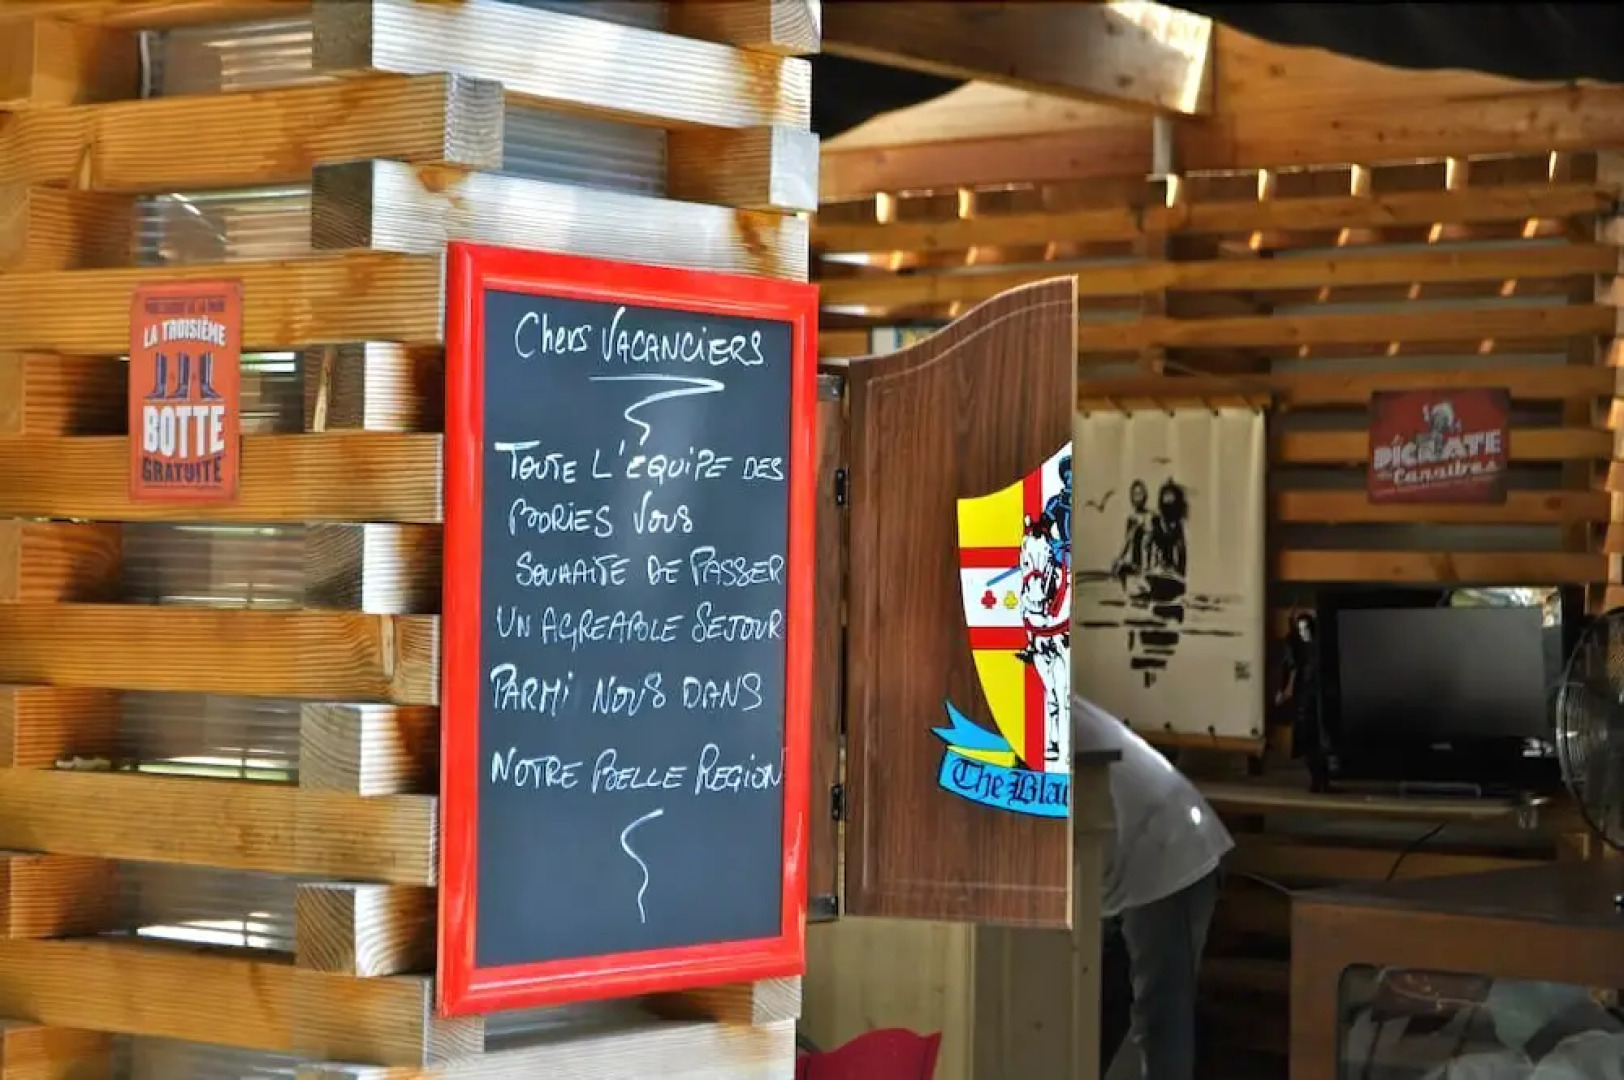 LA TROISIÈME
BOTTE
GRATUITE
Chers VACANCIERS
TOUTE L'EQUIPE DES
BORIES VOUS
SOUHAITE DE PASSER
UN AGREABLE SEJOUR
PARMI NOUS DANS
NOTRE BELLE REGION
The Blac
PICRATE